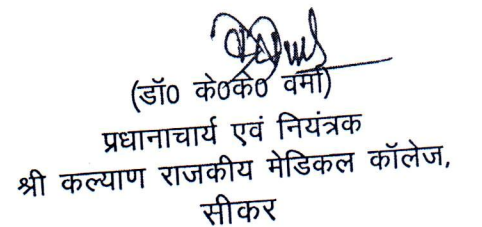 (डॉ0 के0के0 वर्मा)
प्रधानाचार्य एवं नियंत्रक
श्री कल्याण राजकीय मेडिकल कॉलेज,
सीकर